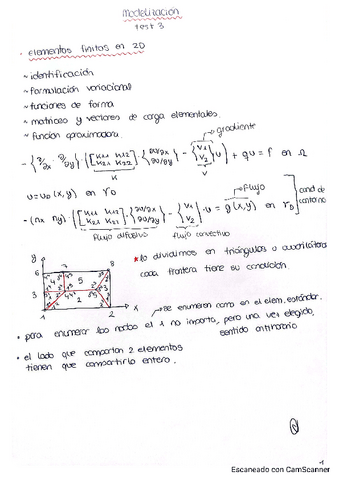 Modelización
test 3
• elementos finitos en 2D
~ identificación
~ formulación variacional
~ funciones de forma
~ matrices y vectores de carga elementales.
~ función aproximadora.
→ gradiente
- {∂/∂x ∂/∂y} · ([K11 K12 K21 K22] · {∂u/∂x ∂u/∂y} - {V1 V2} u) + qu = f en Ω
K
u = u0 (x,y) en Γ0
→ flujo
cond de contorno
- (nx ny) · ([K11 K12 K21 K22] · {∂u/∂x ∂u/∂y} - {V1 V2} · u = g(x,y) en Γ
flujo difusivo
flujo convectivo
* lo dividimos en triángulos o cuadriláteros
cada frontera tiene su condición.
y
6 7 8
3
x
1 2
→ se enumeran como en el elem. estándar.
• para enumerar los nodos el 1 no importa, pero una vez elegido,
sentido antihorario
• el lado que compartan 2 elementos
tienen que compartirlo entero.
Escaneado con CamScanner